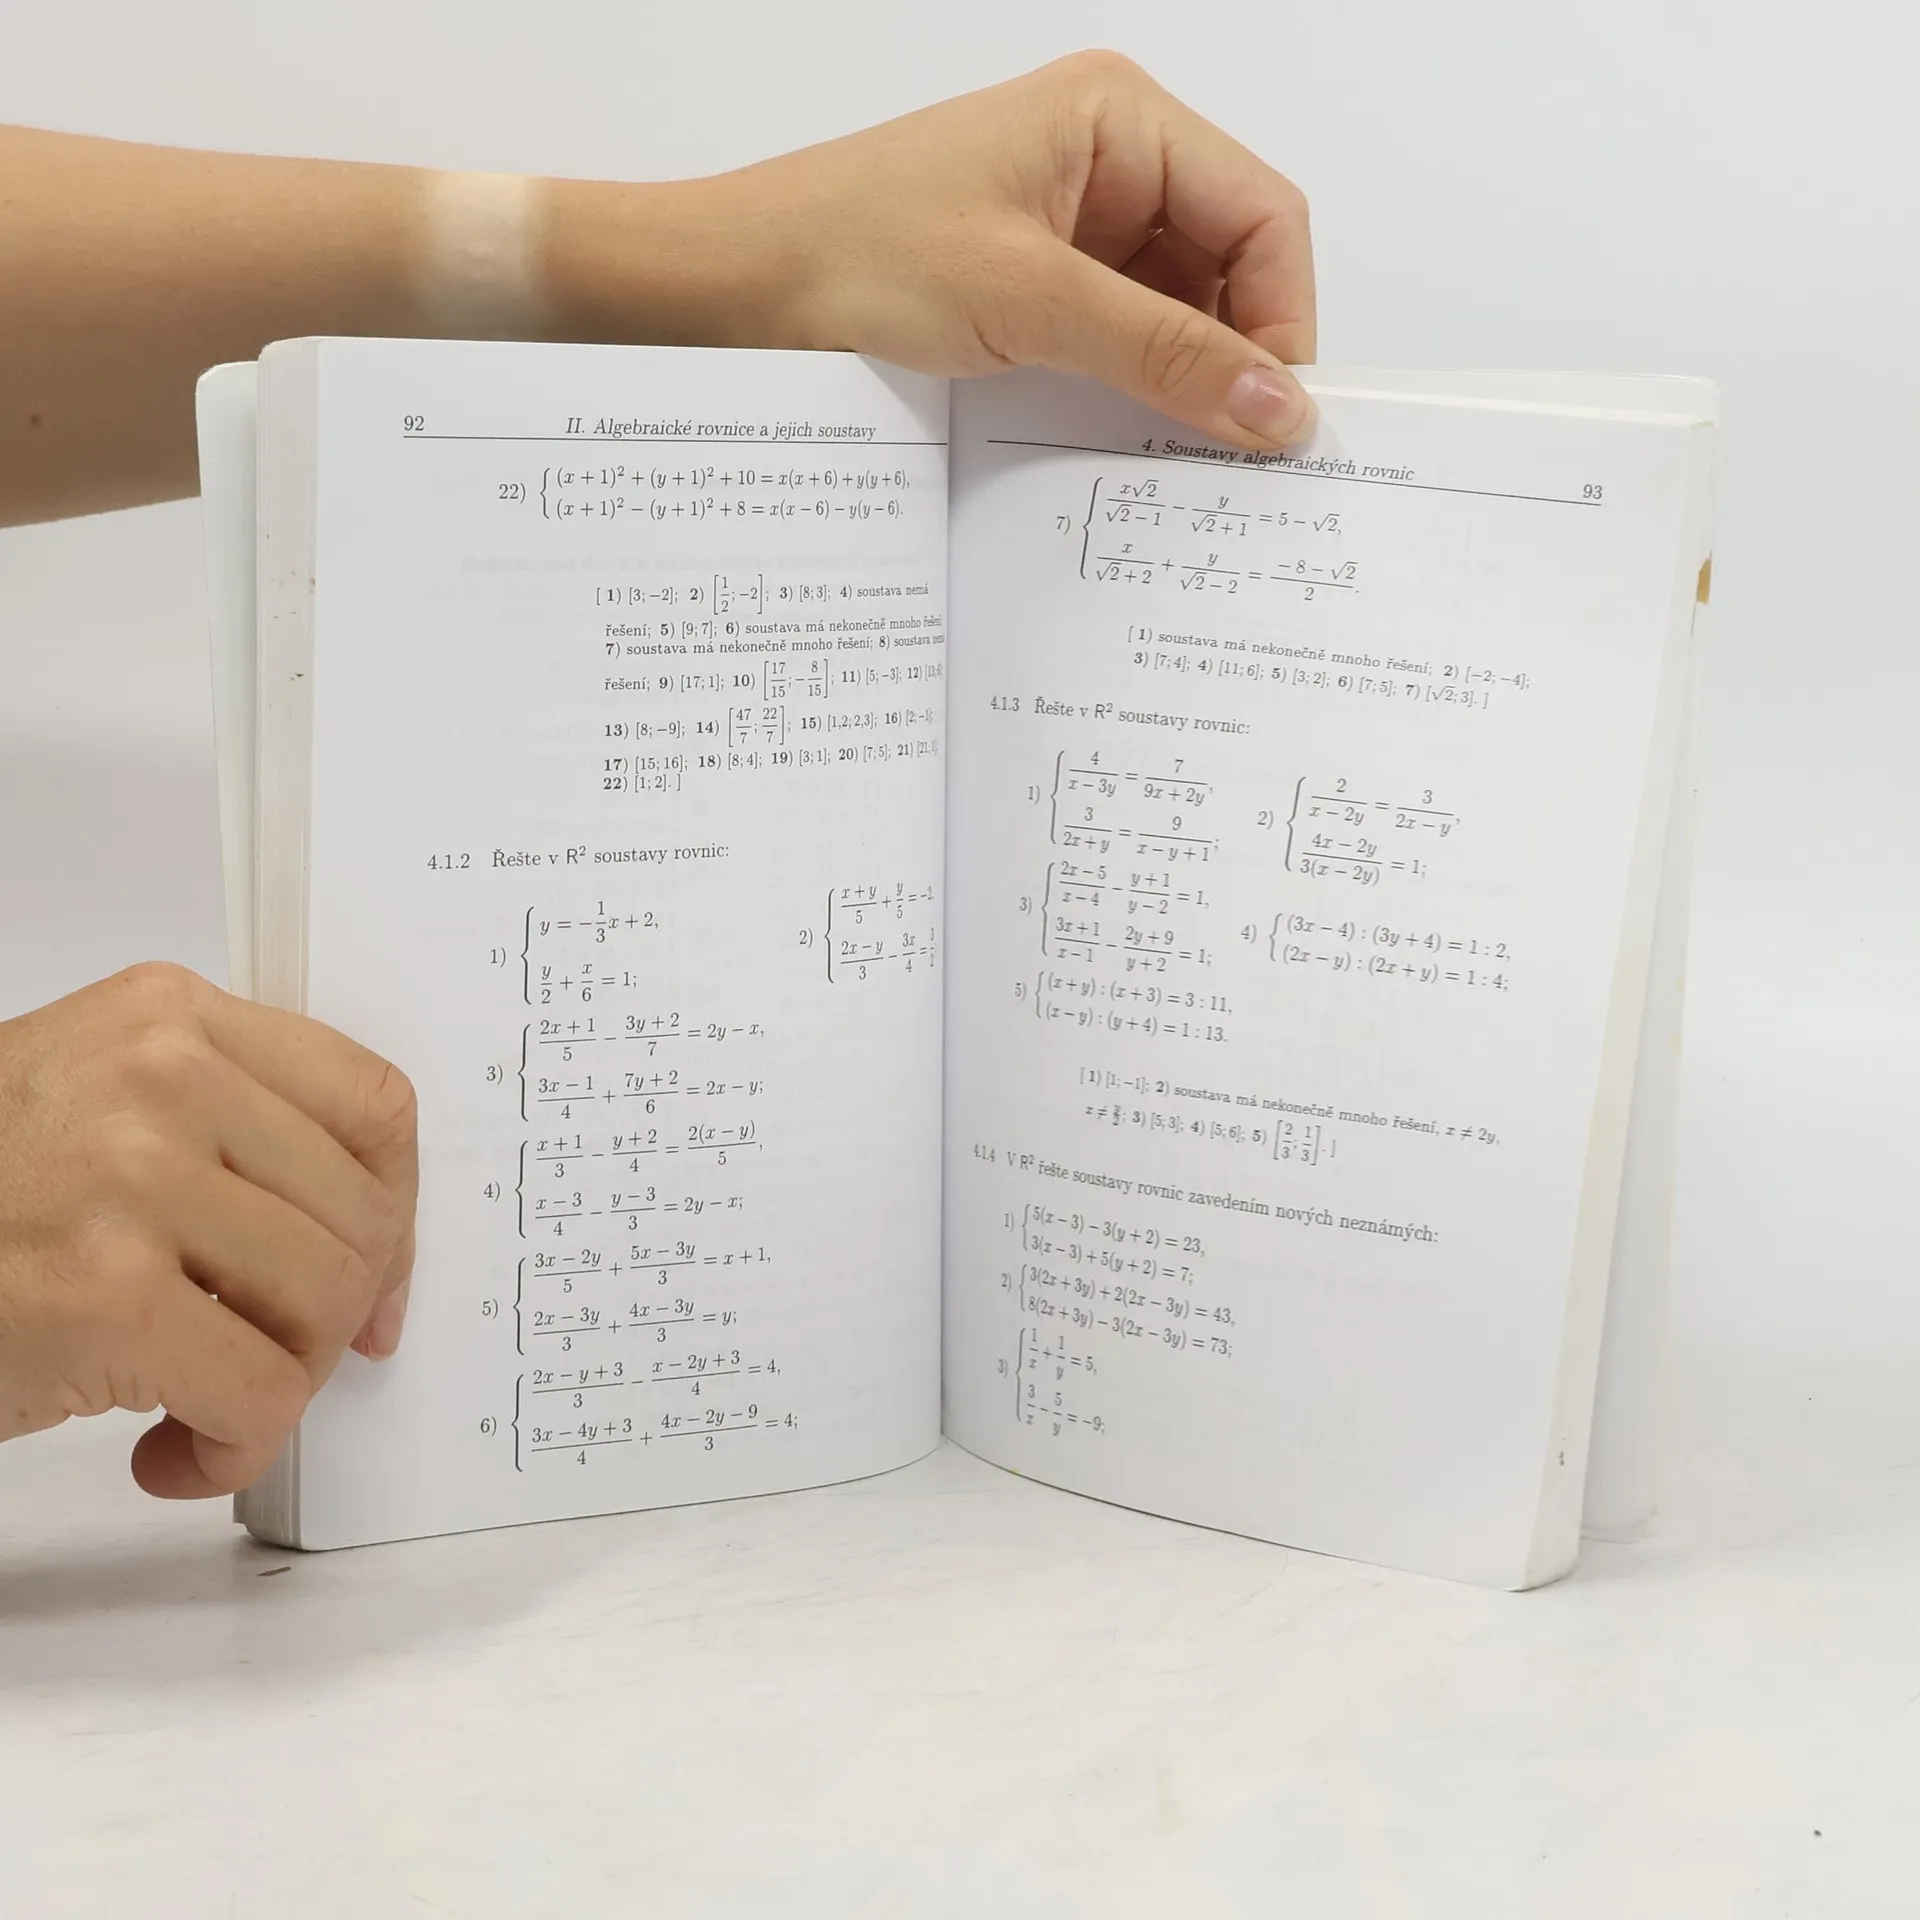 92 II. Algebraické rovnice a jejich soustavy
22) { (x + 1)² + (y + 1)² + 10 = x(x + 6) + y(y + 6),
(x + 1)² − (y + 1)² + 8 = x(x − 6) − y(y − 6).
[ 1) [3; −2]; 2) [1/2; −2]; 3) [8; 3]; 4) soustava nemá
řešení; 5) [9; 7]; 6) soustava má nekonečně mnoho řešení;
7) soustava má nekonečně mnoho řešení; 8) soustava nemá
řešení; 9) [17; 1]; 10) [17/15; −8/15]; 11) [5; −3]; 12)
13) [8; −9]; 14) [47/7; 22/7]; 15) [1,2; 2,3]; 16) [2; −1];
17) [15; 16]; 18) [8; 4]; 19) [3; 1]; 20) [7; 5]; 21)
22) [1; 2]. ]
4.1.2 Řešte v R² soustavy rovnic:
1) { y = −1/3 x + 2,
y/2 + x/6 = 1;
2) { (x + y)/5 + y/5 = −2,
(2x − y)/3 − 3x/4 = 3/2;
3) { (2x + 1)/5 − (3y + 2)/7 = 2y − x,
(3x − 1)/4 + (7y + 2)/6 = 2x − y;
4) { (x + 1)/3 − (y + 2)/4 = 2(x − y)/5,
(x − 3)/4 − (y − 3)/3 = 2y − x;
5) { (3x − 2y)/5 + (5x − 3y)/3 = x + 1,
(2x − 3y)/3 + (4x − 3y)/3 = y;
6) { (2x − y + 3)/3 − (x − 2y + 3)/4 = 4,
(3x − 4y + 3)/4 + (4x − 2y − 9)/3 = 4;
4. Soustavy algebraických rovnic 93
7) { x√2/(√2 − 1) − y/(√2 + 1) = 5 − √2,
x/(√2 + 2) + y/(√2 − 2) = (−8 − √2)/2.
[ 1) soustava má nekonečně mnoho řešení; 2) [−2; −4];
3) [7; 4]; 4) [11; 6]; 5) [3; 2]; 6) [7; 5]; 7) [√2; 3]. ]
4.1.3 Řešte v R² soustavy rovnic:
1) { 4/(x − 3y) = 7/(9x + 2y),
3/(2x + y) = 9/(x − y + 1);
2) { 2/(x − 2y) = 3/(2x − y),
(4x − 2y)/(3(x − 2y)) = 1;
3) { (2x − 5)/(x − 4) − (y + 1)/(y − 2) = 1,
(3x + 1)/(x − 1) − (2y + 9)/(y + 2) = 1;
4) { (3x − 4) : (3y + 4) = 1 : 2,
(2x − y) : (2x + y) = 1 : 4;
5) { (x + y) : (x + 3) = 3 : 11,
(x − y) : (y + 4) = 1 : 13.
[ 1) [1; −1]; 2) soustava má nekonečně mnoho řešení, x ≠ 2y,
x ≠ y/2; 3) [5; 3]; 4) [5; 6]; 5) [2/3; 1/3]. ]
4.1.4 V R² řešte soustavy rovnic zavedením nových neznámých:
1) { 5(x − 3) − 3(y + 2) = 23,
3(x − 3) + 5(y + 2) = 7;
2) { 3(2x + 3y) + 2(2x − 3y) = 43,
8(2x + 3y) − 3(2x − 3y) = 73;
3) { 1/x + 1/y = 5,
3/x − 5/y = −9;